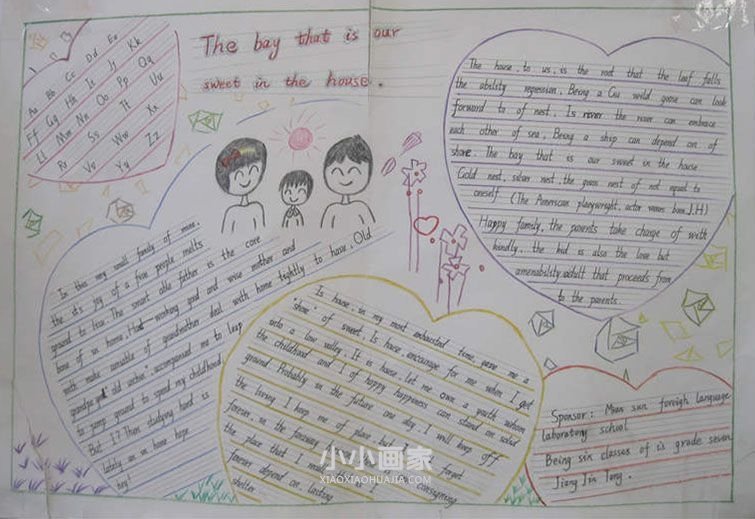 The bay that is our
sweet in the house.
Aa Bb Cc Dd Ee
Ff Gg Hh Ii Jj Kk
Ll Mm Nn Oo Pp Qq
Rr Ss Tt Uu
Vv Ww Xx
Yy Zz
The house, to us, is the root that the leaf falls
the ability repression, Being a Cu wild goose can look
forward to of nest, Is river the river can embrace
each other of sea, Being a ship can depend on of
shore. The bay that is our sweet in the house
Gold nest, silver nest, the grass nest of not equal to
oneself (The American playwright, actor
Happy family, the parents take charge of with
kindly, the kid is also the love but
amenability adult that proceeds from
to the parents.
In this my small family of mine,
the it's joy of a five people melts
ground to live. The smart able father is the core
bone of in home, Hard-working good and wise mother and
with make amiable of grandmother deal with home tightly to have, Old
grandpa "old urchin" accompanied me to leap
to jump ground to spend my childhood,
But I? Then studying hard is
lately an in home hope
boy!
Is house, in my most exhausted time, gave me a
"show" of sweet. Is house, encourage for me when I get
into a low valley. It is house, let me own a youth whom
the childhood and I of happy happiness can stand on solid
ground Probably in the future one day, I will keep off
the living I keep me of place, but I can't forget
forever, in the faraway
the place that I make thou I consigning
forever depend on, lasting
shelter.
Sponsor: Mian sun foreign language
laboratory school
Being six classes of is grade seven
Jiang Jin Tong.
小小画家
XIAOXIAOHUAJIA.COM